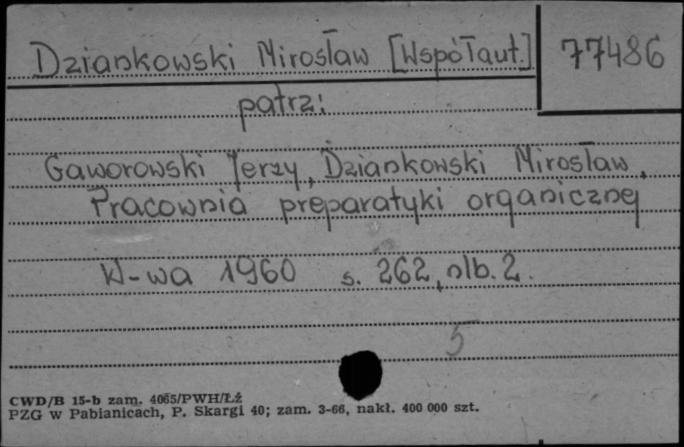 Dziankowski Mirosław [Współaut.]
77486
patrz:
Gaworowski Jerzy, Dziankowski Mirosław.
Pracownia preparatyki organicznej
W-wa 1960 s. 262, nlb. 2.
5
CWD/B 15-b zam. 4065/PWH/Łź
PZG w Pabianicach, P. Skargi 40; zam. 3-66, nakł. 400 000 szt.